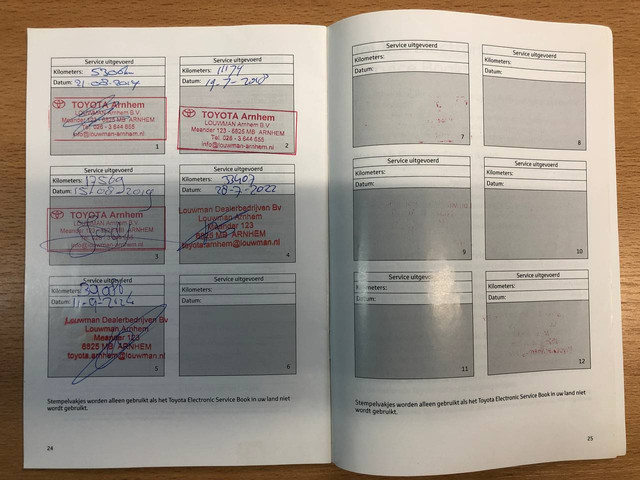 Service uitgevoerd
Kilometers:
Datum:
TOYOTA Arnhem
LOUWMAN Arnhem B.V.
Meander 123 - 6825 MB ARNHEM
Tel. 026 - 3 644 655
info@louwman-arnhem.nl
1
Service uitgevoerd
Kilometers: 11174
Datum: 19-7-2018
TOYOTA Arnhem
LOUWMAN Arnhem B.V.
Meander 123 - 6825 MB ARNHEM
Tel. 026 - 3 644 655
info@louwman-arnhem.nl
2
Service uitgevoerd
Kilometers: 17569
Datum: 15-08-2019
TOYOTA Arnhem
LOUWMAN Arnhem B.V.
Meander 123 - 6825 MB ARNHEM
info@louwman-arnhem.nl
3
Service uitgevoerd
Kilometers: 33407
Datum: 28-7-2022
Louwman Dealerbedrijven Bv
Louwman Arnhem
Meander 123
6825 MB ARNHEM
toyota.arnhem@louwman.nl
4
Service uitgevoerd
Kilometers:
Datum:
Louwman Dealerbedrijven Bv
Louwman Arnhem
Meander 123
6825 MB ARNHEM
toyota.arnhem@louwman.nl
5
Service uitgevoerd
Kilometers:
Datum:
6
Stempelvakjes worden alleen gebruikt als het Toyota Electronic Service Book in uw land niet
wordt gebruikt.
24
Service uitgevoerd
Kilometers:
Datum:
7
Service uitgevoerd
Kilometers:
Datum:
8
Service uitgevoerd
Kilometers:
Datum:
9
Service uitgevoerd
Kilometers:
Datum:
10
Service uitgevoerd
Kilometers:
Datum:
11
Service uitgevoerd
Kilometers:
Datum:
12
Stempelvakjes worden alleen gebruikt als het Toyota Electronic Service Book in uw land niet
wordt gebruikt.
25